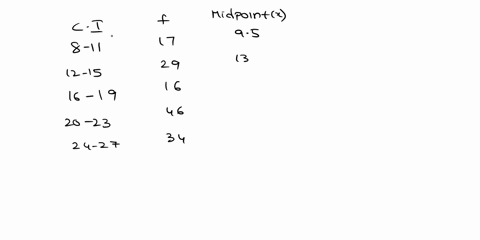 C.I f Midpoint(x)
8-11 17 9.5
12-15 29 13
16-19 16
20-23 46
24-27 34